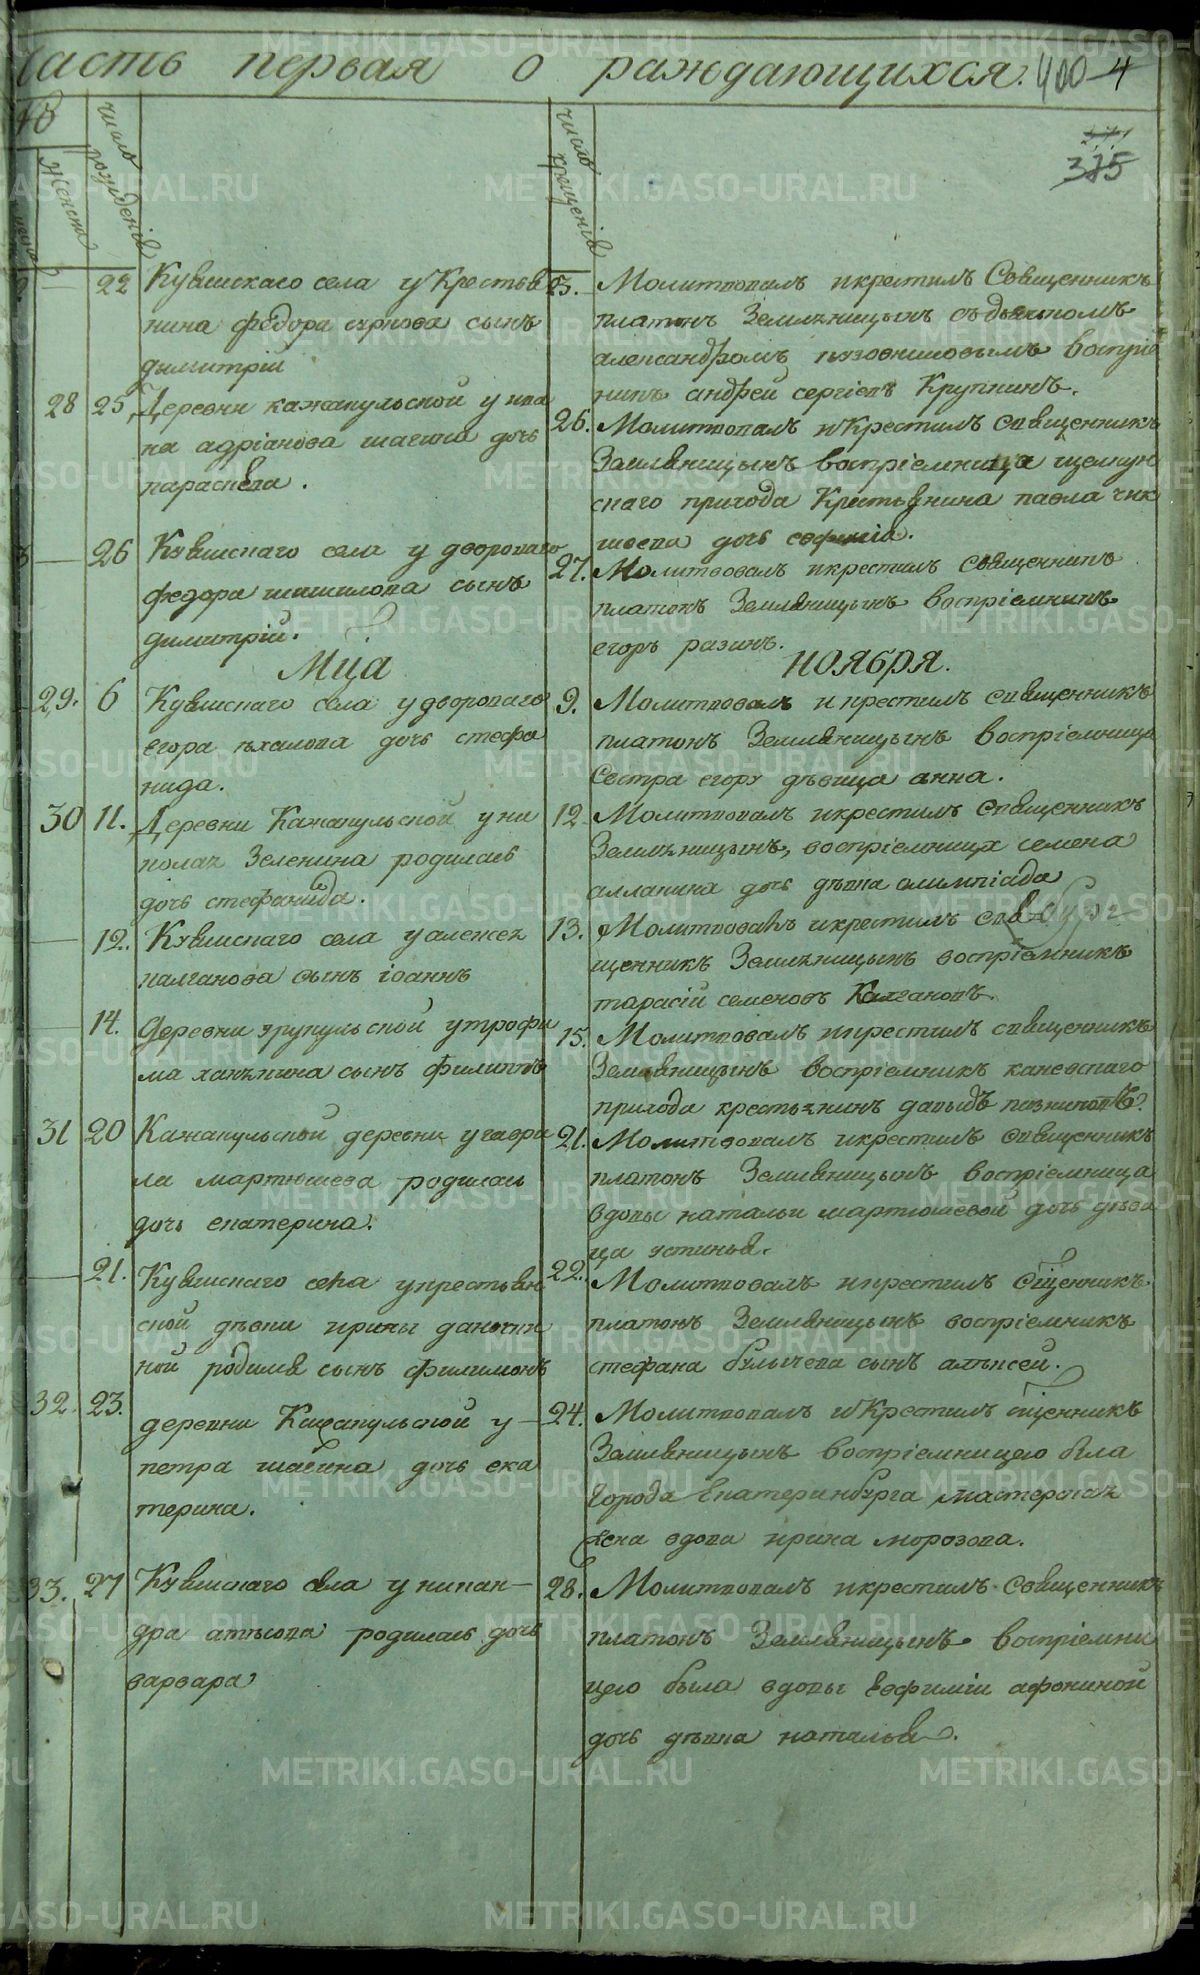 часть первая о раждающихся.
400 4
385
женска
число рождения
число крещения
22 Кувшскаго села у Крестья
нина федора сынъ
димитрiи
25. Молитвовалъ и крестилъ Священникъ
платонъ Земляницынъ съ дьякономъ
александромъ воспрiе
никъ андрей сергiевъ Крупнинъ.
28 25 Деревни кажакульской у ива
на адрiанова шагина дочь
параскева.
26. Молитвовалъ и Крестилъ священникъ
Земляницынъ воспрiемница щелкун
скаго прихода Крестьянина павла чик
шоева дочь софiя.
26 Кувшскаго села у двороваго
федора шашилова сынъ
димитрiй.
27. Молитвовалъ и крестилъ священникъ
платонъ Земляницынъ воспрiемникъ
егоръ разинъ.
Мца ноября.
29. 6 Кувшскаго села у двороваго
егора дочь стефа
нида.
9. Молитвовалъ и крестилъ священникъ
платонъ Земляницынъ воспрiемница
Сестра егору дѣвица анна.
30 11. Деревни Кажакульской у ни
колая Зеленина родилась
дочь стефанида.
12 Молитвовалъ и крестилъ священникъ
Земляницынъ, воспрiемница семена
аллакина дочь дѣвка олимпiада
12. Кувшскаго села у алексея
калганова сынъ iоаннъ
13. Молитвовалъ и крестилъ свя
щенникъ Земляницынъ воспрiемникъ
тарасiй семеновъ Калгановъ.
14. Деревни у трофи
ма сынъ филиппъ
15. Молитвовалъ и крестилъ священникъ
Земляницынъ воспрiемникъ каневскаго
прихода крестьянинъ давыдъ
31 20 Кажакульской деревни у гаври
ла мартюшева родилась
дочь екатерина.
21. Молитвовалъ и крестилъ священникъ
платонъ Земляницынъ воспрiемница
вдовы натальи мартюшевой дочь дѣви
ца устинья.
21. Кувшскаго села у крестьян
ской дѣвки ирины
ной родился сынъ филимонъ
22. Молитвовалъ и крестилъ Сщенникъ
платонъ Земляницынъ воспрiемникъ
стефана булычева сынъ алексей.
32. 23. деревни Кажакульской у
петра шагина дочь ека
терина.
24. Молитвовалъ и Крестилъ сщенникъ
Земляницынъ воспрiемницею была
города Екатеринбурга мастерская
жена вдова ирина морозова.
33. 27 Кувшскаго села у никан-
дра родилась дочь
варвара
28. Молитвовалъ и крестилъ Священникъ
платонъ Земляницынъ воспрiемни
цею была вдовы Евфимiи афониной
дочь дѣвка наталья.
METRIKI.GASO-URAL.RU